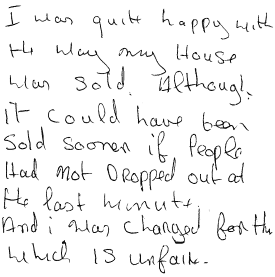 I was quite happy with
the way my House
was sold. Although,
it could have been
sold sooner if People
Had not Dropped out at
the last minute.
And i was charged for the
which is unfair.